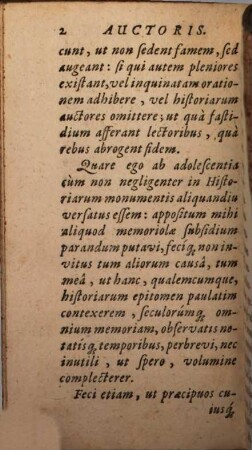 2 AUCTORIS.
cunt, ut non sedent famem, sed
augeant: si qui autem pleniores
existant, vel inquinatam oratio-
nem adhibere, vel historiarum
auctores omittere; ut quà fasti-
dium afferant lectoribus, quà
rebus abrogent fidem.
Quare ego ab adolescentia
cùm non negligenter in Histo-
riarum monumentis aliquandiu
versatus essem: appositum mihi
aliquod memoriolæ subsidium
parandum putavi, feciq́; non in-
vitus tum aliorum causâ, tum
meâ, ut hanc, qualemcumque,
historiarum epitomen paulatim
contexerem, seculorumq́; om-
nium memoriam, observatis no-
tatisq́; temporibus, perbrevi, nec
inutili, ut spero, volumine
complecterer.
Feci etiam, ut præcipuos cu-
iusq́;